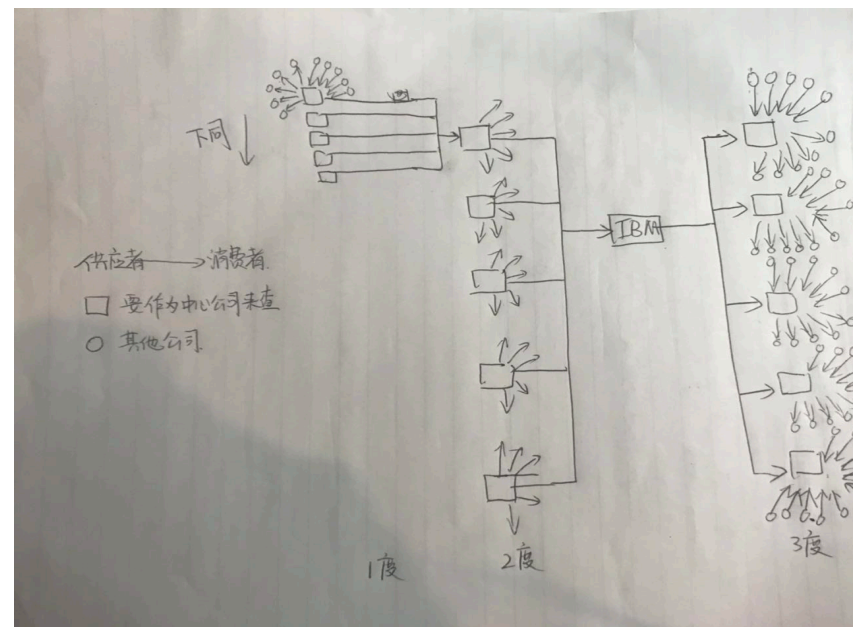 下同
IBM
供应者 消费者
要作为中心公司来查
其他公司
1度
2度
3度